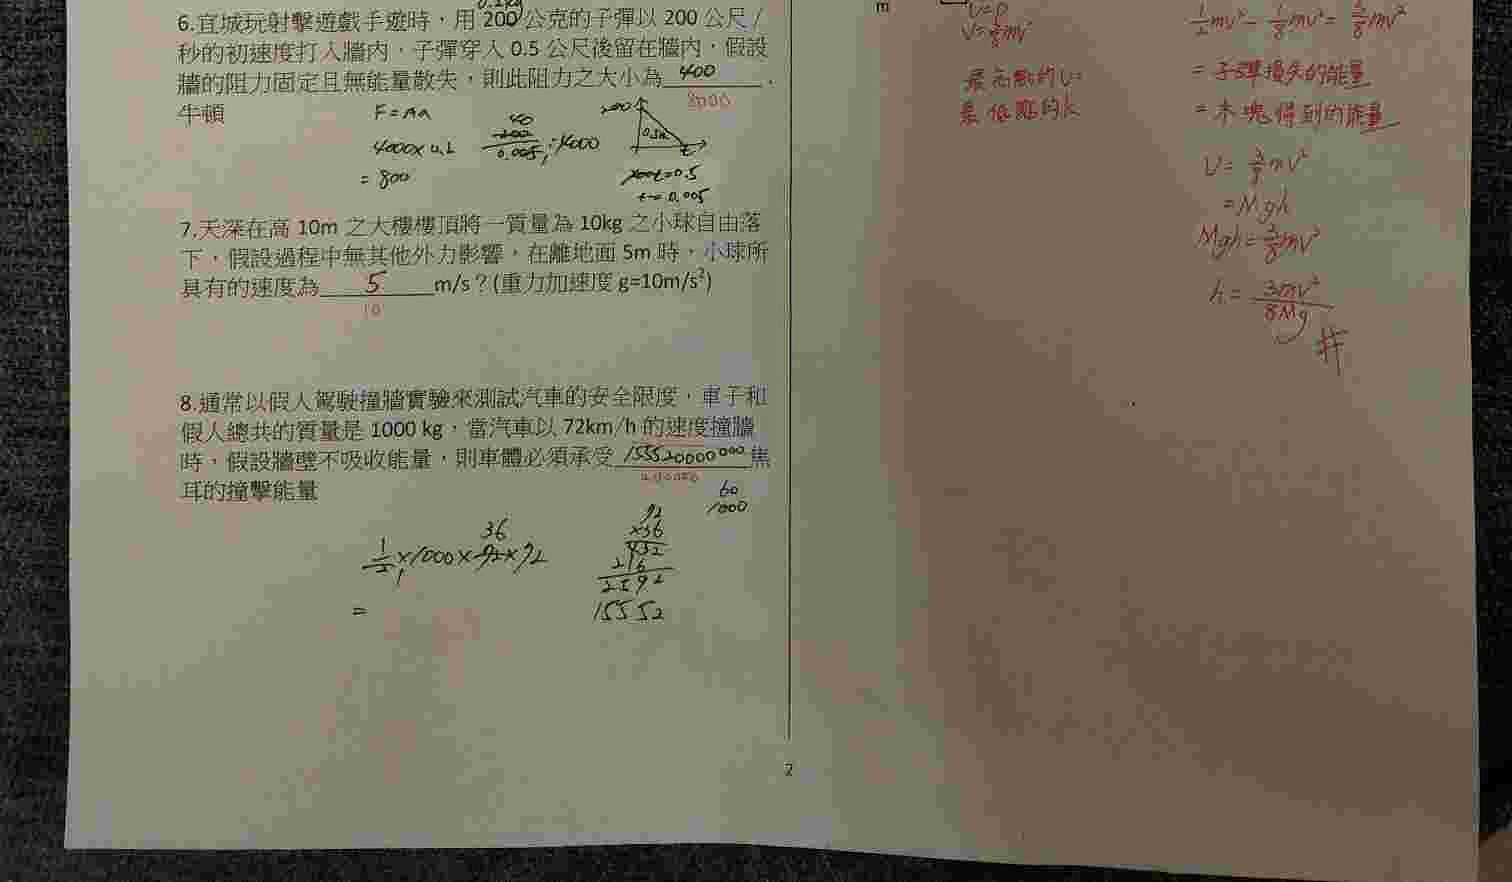 0.2kg
6.宜城玩射擊遊戲手遊時，用 200 公克的子彈以 200 公尺/
秒的初速度打入牆內，子彈穿入 0.5 公尺後留在牆內，假設
牆的阻力固定且無能量散失，則此阻力之大小為 400 .
8000
牛頓
F=ma
4000×0.2
=800
40
200
0.005
=4000
200
0.5m
t
200t=0.5
t=0.005
7.天深在高 10m 之大樓樓頂將一質量為 10kg 之小球自由落
下，假設過程中無其他外力影響，在離地面 5m 時，小球所
具有的速度為 5 m/s？(重力加速度 g=10m/s²)
10
8.通常以假人駕駛撞牆實驗來測試汽車的安全限度，車子和
假人總共的質量是 1000 kg，當汽車以 72km/h 的速度撞牆
時，假設牆壁不吸收能量，則車體必須承受 15552000000 焦
200000
耳的撞擊能量
60
1000
36
1/2×1000×72×72
=
72
×36
432
216
2592
15552
2
m
U=0
最高點的U
最低點的k
1/2mv²-1/8mv²=3/8mv²
=子彈損失的能量
=木塊得到的能量
U=3/8mv²
=Mgh
Mgh=3/8mv²
h=3mv²/8Mg
#